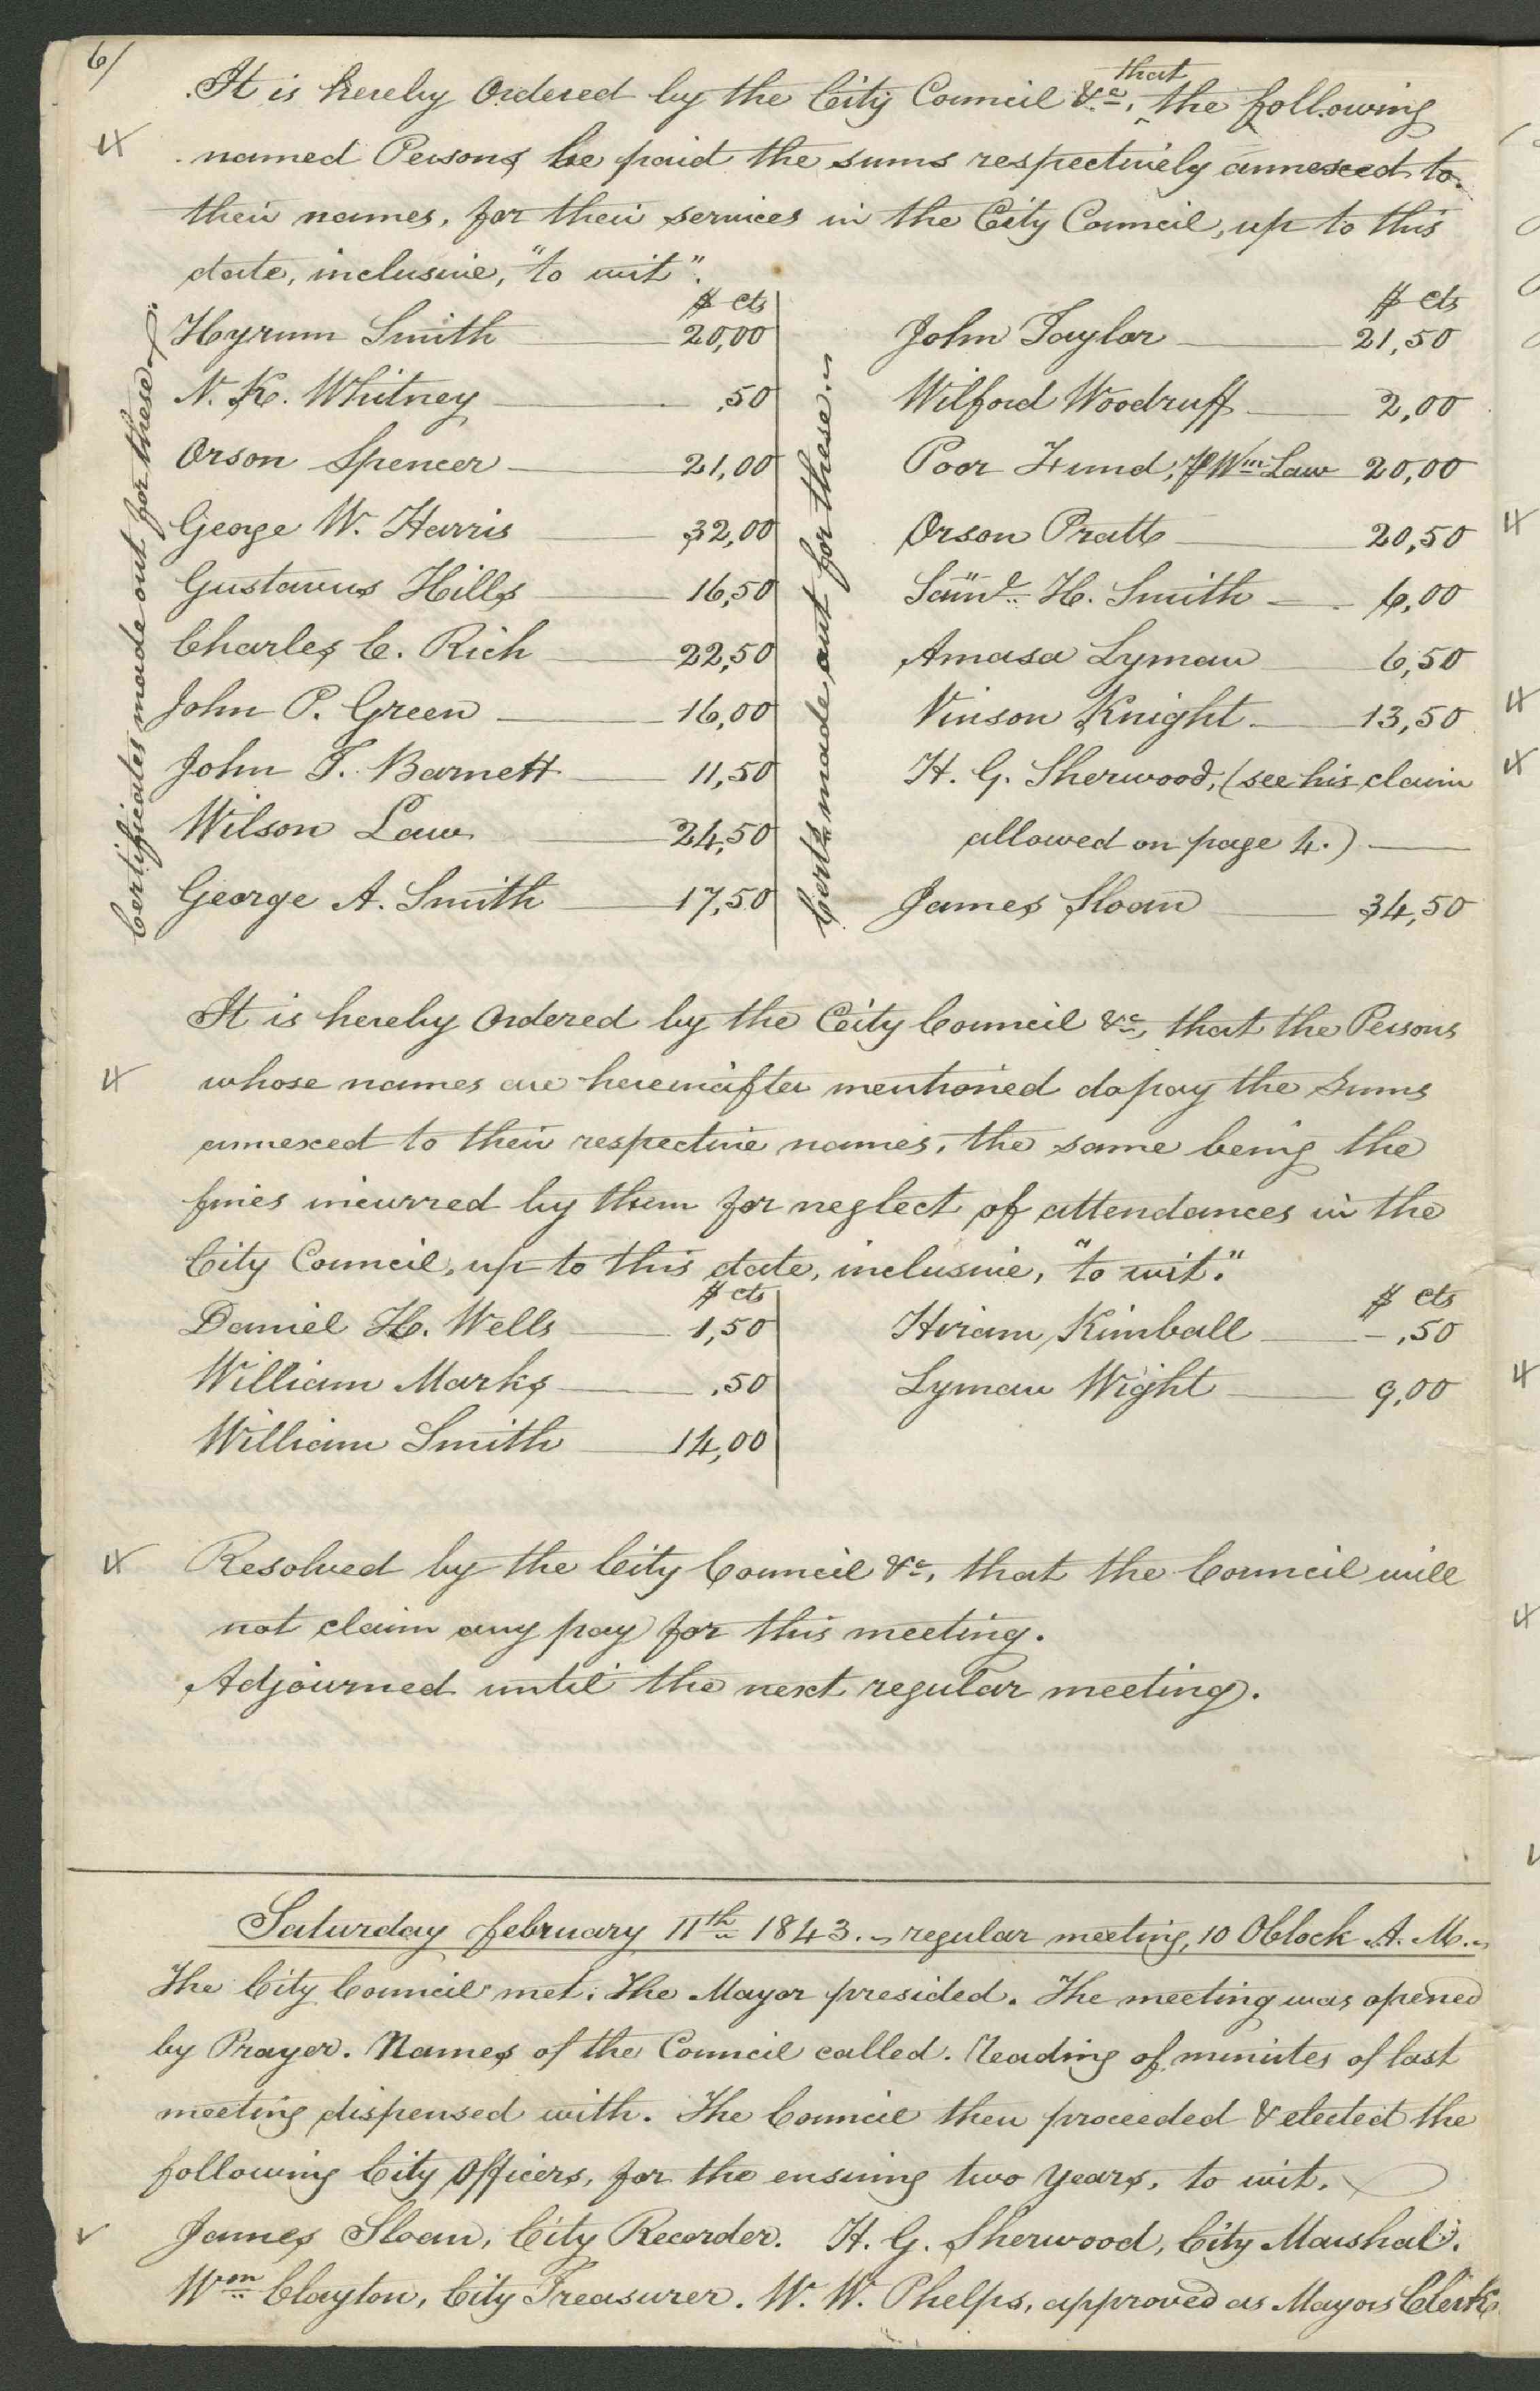 6/
It is hereby Ordered by the City Council &c, that the following
named Persons be paid the sums respectively annexed to
their names, for their services in the City Council, up to this
date, inclusive, "to wit".
Certificates made out for these
$ cts
Hyrum Smith 20,00
N. K. Whitney ,50
Orson Spencer 21,00
George W. Harris 32,00
Gustavus Hills 16,50
Charles C. Rich 22,50
John P. Green 16,00
John T. Barnett 11,50
Wilson Law 24,50
George A. Smith 17,50
Certs. made out for these
$ cts
John Taylor 21,50
Wilford Woodruff 2,00
Poor Fund, P Wm Law 20,00
Orson Pratt 20,50
Saml. H. Smith 6,00
Amasa Lyman 6,50
Vinson Knight 13,50
H. G. Sherwood, (see his claim
allowed on page 4.)
James Sloan 34,50
It is hereby Ordered by the City Council &c, that the Persons
whose names are hereinafter mentioned do pay the Sums
annexed to their respective names, the same being the
fines incurred by them for neglect of attendances in the
City Council, up to this date, inclusive, "to wit."
$ cts
Daniel H. Wells 1,50
William Marks ,50
William Smith 14,00
$ cts
Hiram Kimball – ,50
Lyman Wight 9,00
Resolved by the City Council &c, that the Council will
not claim any pay for this meeting.
Adjourned until the next regular meeting.
Saturday February 11th 1843. regular meeting, 10 OClock A. M.
The City Council met. The Mayor presided. The meeting was opened
by Prayer. Names of the Council called. Reading of minutes of last
meeting dispensed with. The Council then proceeded & elected the
following City Officers, for the ensuing two Years, to wit.
James Sloan, City Recorder. H. G. Sherwood, City Marshal.
Wm Clayton, City Treasurer. W. W. Phelps, approved as Mayors Clerk